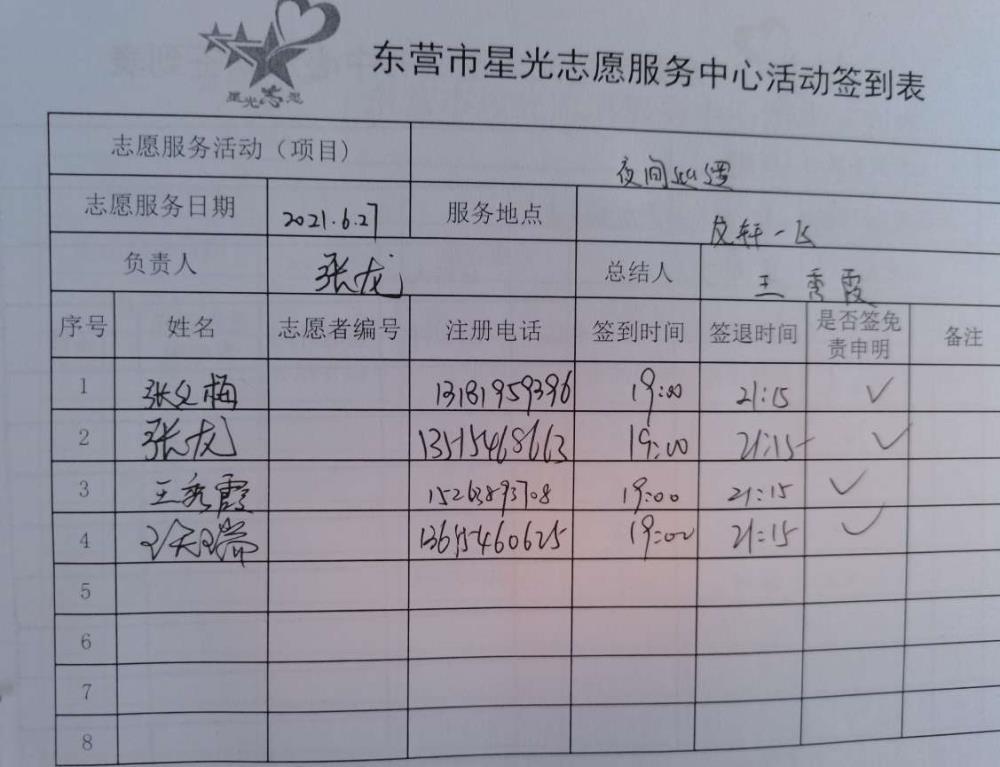 星光志愿
东营市星光志愿服务中心活动签到表
志愿服务活动（项目） 夜间巡逻
志愿服务日期 2021.6.27 服务地点 一区
负责人 张龙 总结人 王秀霞
序号 姓名 志愿者编号 注册电话 签到时间 签退时间 是否签免责申明 备注
1 张文梅 13181959396 19:00 21:15 ✓
2 张龙 13515468663 19:00 21:15 ✓
3 王秀霞 15263893708 19:00 21:15 ✓
4 13645460625 19:00 21:15 ✓
5
6
7
8